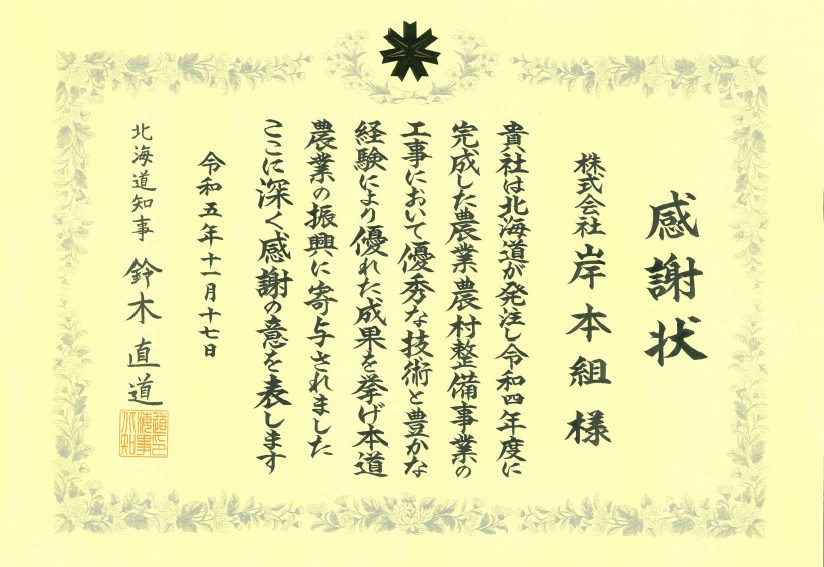 感謝状
株式会社 岸本組 様
貴社は北海道が発注し令和四年度に
完成した農業農村整備事業の
工事において優秀な技術と豊かな
経験により優れた成果を挙げ本道
農業の振興に寄与されました
ここに深く感謝の意を表します
令和五年十一月十七日
北海道知事 鈴木直道